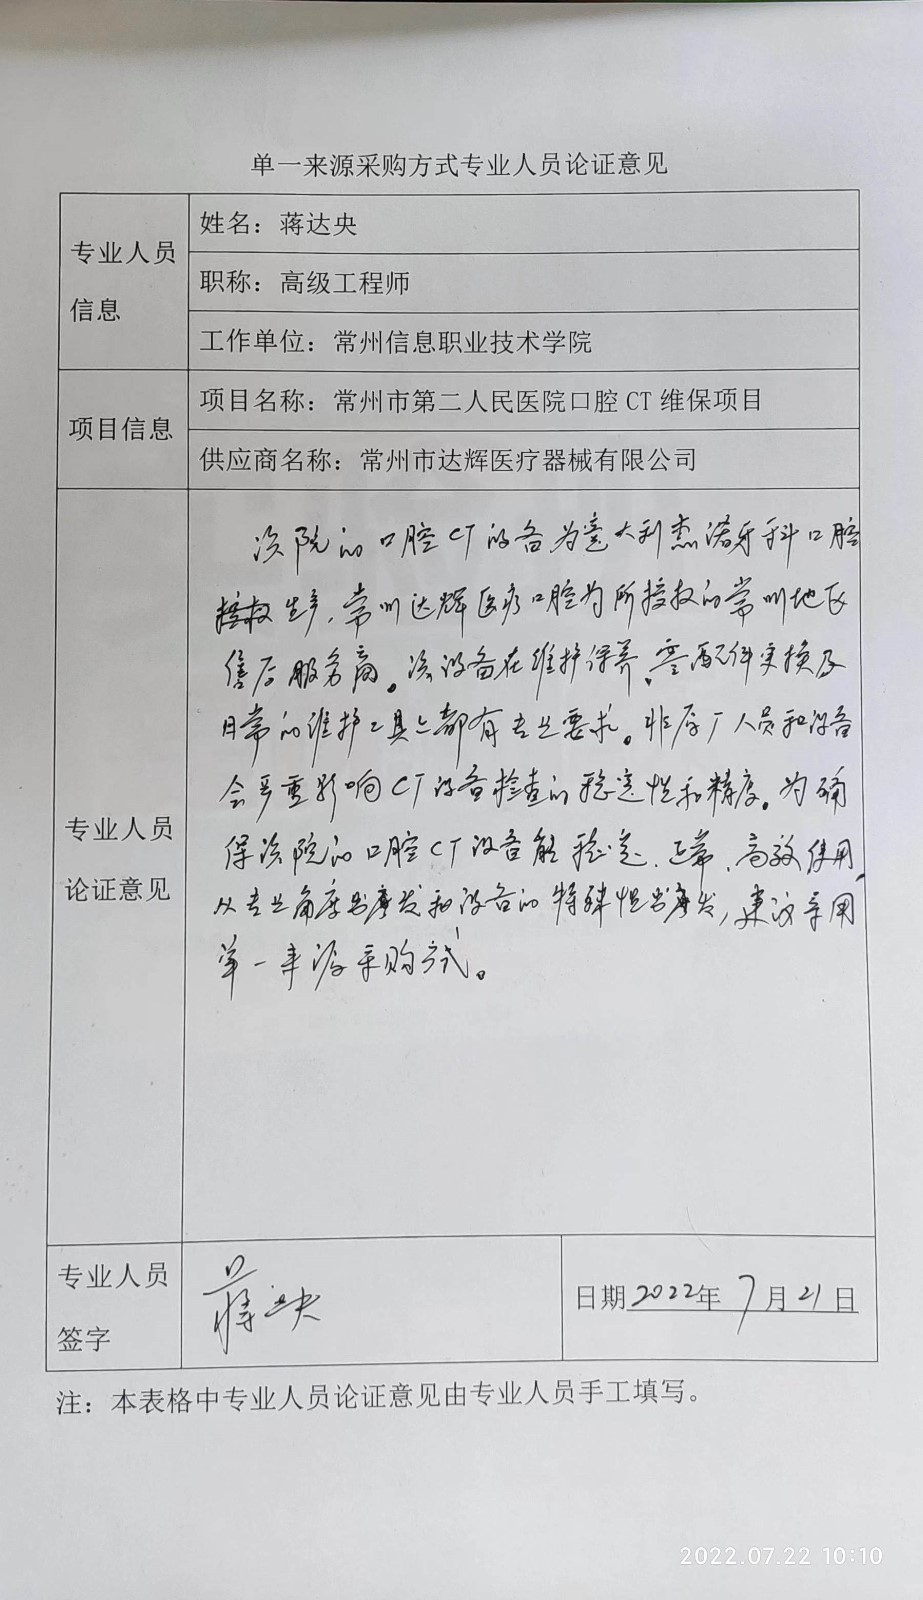 单一来源采购方式专业人员论证意见
专业人员
信息
姓名：蒋达央
职称：高级工程师
工作单位：常州信息职业技术学院
项目信息
项目名称：常州市第二人民医院口腔CT维保项目
供应商名称：常州市达辉医疗器械有限公司
专业人员
论证意见
该院的口腔CT设备为意大利杰诺牙科口腔
生产，常州达辉医疗口腔为所授权的常州地区
售后服务商。该设备在维护保养、零配件更换及
日常的维护工具上都有专业要求。非原厂人员和设备
会严重影响CT设备检查的稳定性和精度。为确
保该院的口腔CT设备能稳定、正常、高效使用，
从专业角度出发和设备的特殊性出发，建议采用
单一来源采购方式。
专业人员
签字
蒋达央
日期2022年7月21日
注：本表格中专业人员论证意见由专业人员手工填写。
2022.07.22 10:10